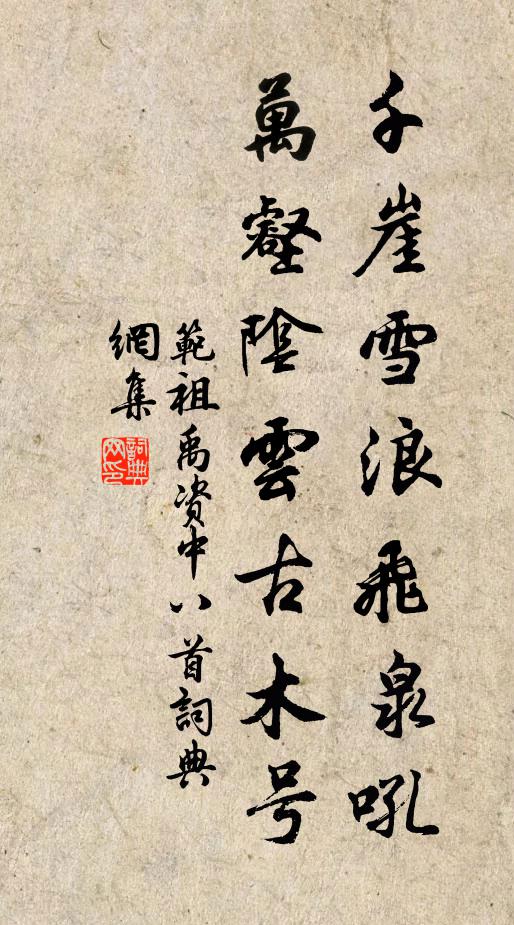 千崖雪浪飛泉吼
萬壑陰雲古木号
範祖禹資中八首詞典
網集
詞典網印